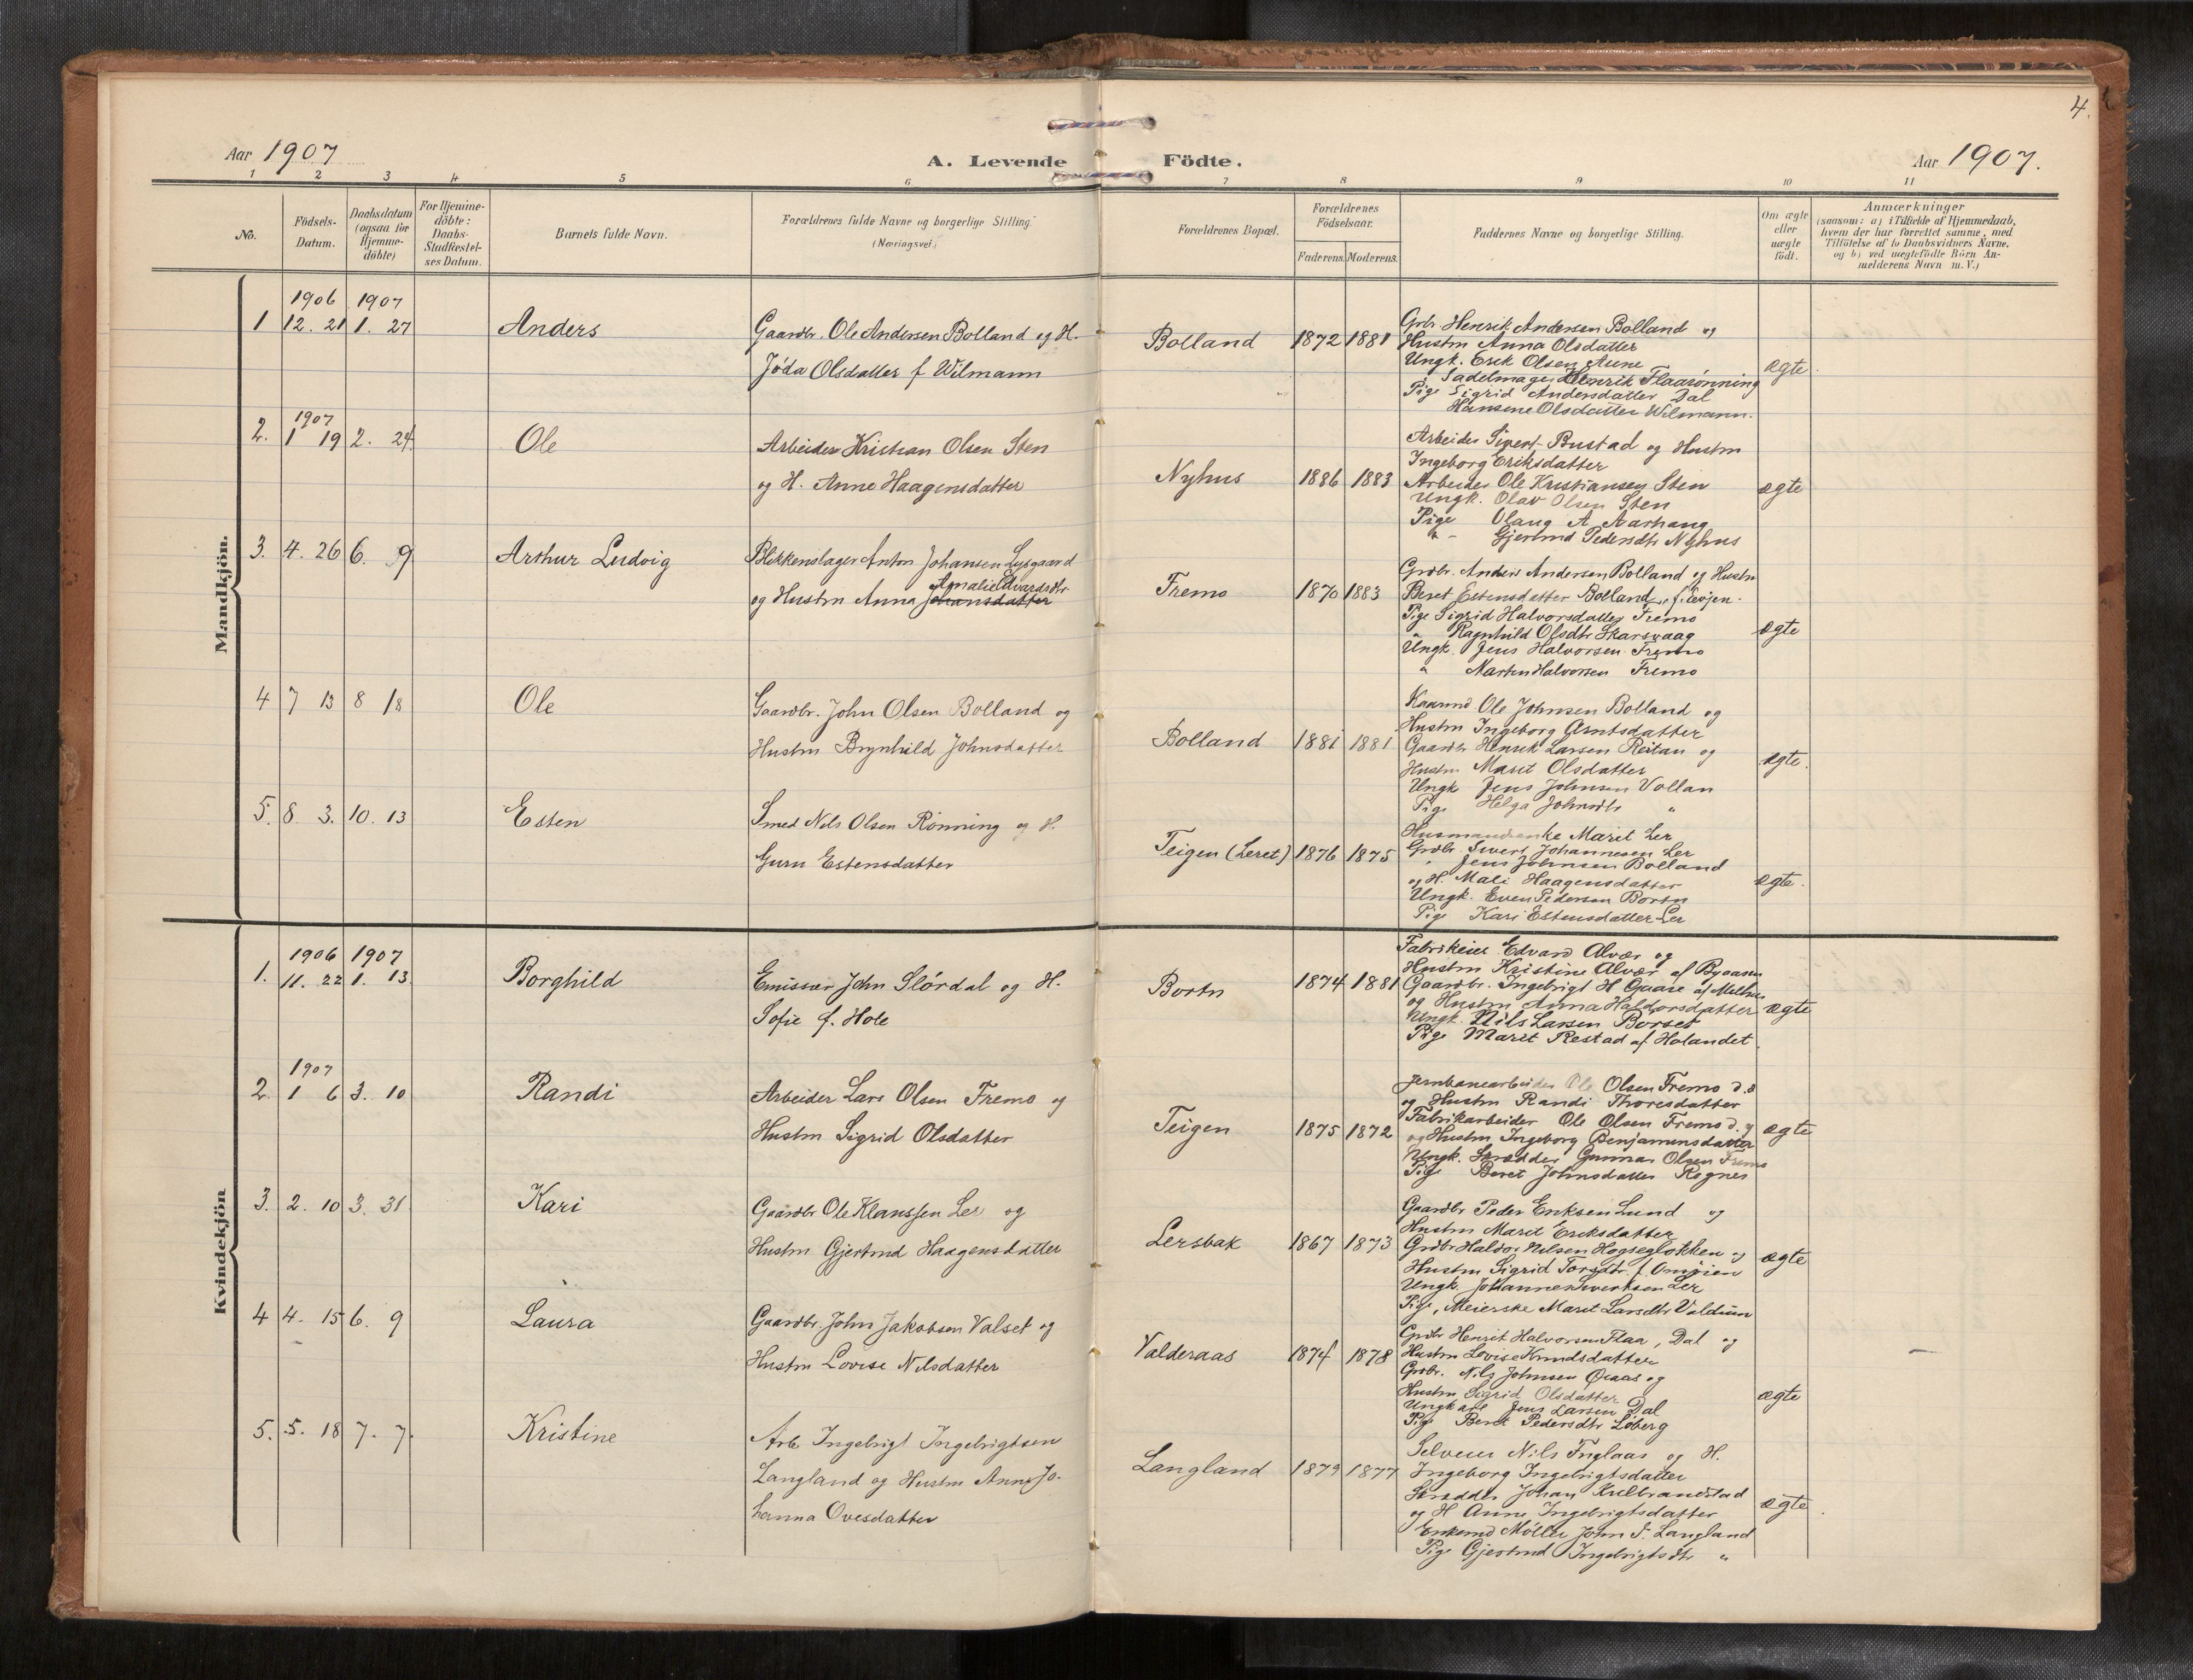 4.
Aar 1907
A. Levende Födte.
Aar 1907.
1 2 3 4 5 6 7 8 9 10 11
No.
Födsels-Datum.
Daabsdatum (ogsaa for Hjemme-döbte)
For Hjemme-döbte: Daabs-Stadfæstel-ses Datum.
Barnets fulde Navn.
Forældrenes fulde Navne og borgerlige Stilling (Næringsvei.)
Forældrenes Bopæl.
Forældrenes Födselsaar.
Faderens. Moderens.
Faddernes Navne og borgerlige Stilling.
Om ægte eller uægte födt.
Anmærkninger
(saasom: a) i Tilfælde af Hjemmedaab,
hvem der har forrettet samme, med
Tilföielse af to Daabsvidners Navne,
og b) ved uægtefödte Börn An-
melderens Navn m. V.)
Mandkjön.
1906 1907
1 12. 21 1. 27 Anders
Gaardbr. Ole Andersen Bolland og H.
Jóda Olsdatter f Wilmann
Bolland 1872 1881
Grbr. Henrik Andersen Bolland og
Hustru Anna Olsdatter
Ungk. Erik Olsen Aune
Sadelmager Henrik Flaarønning
Pige Sigrid Andersdatter Dal
Hansene Olsdatter Wilmann.
ægte
1907
2. 1 19 2. 24. Ole
Arbeider Kristian Olsen Sten
og H. Anne Haagensdatter
Nyhus 1886 1883
Arbeider Sivert Bustad og Hustru
Ingeborg Eriksdatter
Arbeider Ole Kristiansen Sten
Ungk. Olav Olsen Sten
Pige Olaug A Aarhaug
" - Gjertrud Pedersdtr Nyhus
ægte
3. 4. 26 6. 9 Arthur Ludvig
Blikkenslager Anton Johansen Lysgaard
Amalie Edvardsdtr
og Hustru Anna Johansdatter
Fremo 1870 1883
Grdbr. Anders Andersen Bolland og Hustru
Beret Estensdatter Bolland, f.
Pige Sigrid Halvorsdatter Fremo
" Ragnhild Olsdtr Skarsvaag
Ungk. Jens Halvorsen Fremo
" Morten Halvorsen Fremo
ægte
4 7 13 8 18 Ole
Gaardbr. John Olsen Bolland og
Hustru Brynhild Johnsdatter
Bolland 1881 1881
Kaarmd Ole Johnsen Bolland og
Hustru Ingeborg Arntsdatter
Gaardbr Henrik Larsen Reitan og
Hustru Marit Olsdatter
Ungk Jens Johnsen Vollan
Pige Helga Johnsdtr "
ægte.
5. 8. 3. 10. 13 Esten
Smed Nils Olsen Rönning og H.
Guru Estensdatter
Teigen (Leret) 1876 1875
Husmandsenke Marit Ler
Grdbr. Sivert Johannesen Ler
" Jens Johnsen Bolland
og H. Mali Haagensdatter
Ungk. Even Pedersen Bortn
Pige Kari Estensdatter Ler
ægte.
Kvindekjön
1906 1907
1. 11. 22 1. 13. Borghild
Emissær John Slórdal og H.
Sofie f. Hole
Bortn 1874 1881
Fabrikeier Edvard Alvær og
Hustru Kristine Alvær af Byaasen
Gaardbr. Ingebrigt H Gaare af Melhus
og Hustru Anna Haldorsdatter
Ungk. Nils Larsen Borset
Pige Marit Restad af Holandet.
ægte
1907
2. 1 6 3. 10 Randi
Arbeider Lars Olsen Fremo og
Hustru Sigrid Olsdatter
Teigen 1875 1872
Jernbanearbeider Ole Olsen Fremo d.æ
og Hustru Randi Thoresdatter
Fabrikarbeider Ole Olsen Fremo d. y
og Hustru Ingeborg Benjaminsdatter
Ungk. Skrædder Gunnar Olsen Fremo
Pige Beret Johnsdatter Rognes
ægte
3. 2. 10 3. 31 Kari
Gaardbr Ole Klaussen Ler og
Hustru Gjertrud Haagensdatter
Lersbak 1867 1873
Gaardbr Peder Eriksen Lund og
Hustru Marit Eriksdatter
Grdbr Haldor Nilsen Hogseglökken og
Hustru Sigrid Torsdtr f.
Ungk. Johannes Sivertsen Ler
Pige, Meierske Marit Larsdtr Valdum
ægte
4 4. 15 6. 9 Laura
Gaardbr. John Jakobsen Valset og
Hustru Lovise Nilsdatter
Valderaas 1874 1878
Grdbr Henrik Halvorsen Flaa, Dal og
Hustru Lovise Knudsdatter
Grdbr. Nils Johnsen Øraas og
Hustru Sigrid Olsdatter
Ungkarl Jens Larsen Dal
Pige Berit Pedersdtr Löberg
ægte
5. 5. 18 7. 7. Kristine
Arb. Ingebrigt Ingebrigtsen
Langland og Hustru Anne Jo-
hanna Ovesdatter
Langland 1879 1877
Selveier Nils Fuglaas og H.
Ingeborg Ingebrigtsdatter
Skrædder Johan
og H Anne Ingebrigtsdatter
Enkemd Möller John I. Langland
Pige Gjertrud Ingebrigtsdtr "
ægte